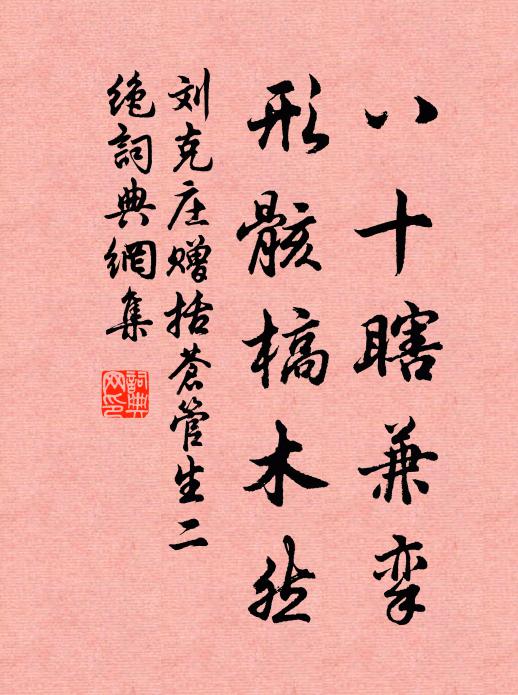 八十瞎兼挛
形骸槁木然
刘克庄赠括苍管生二
绝詞典網集
詞典网印